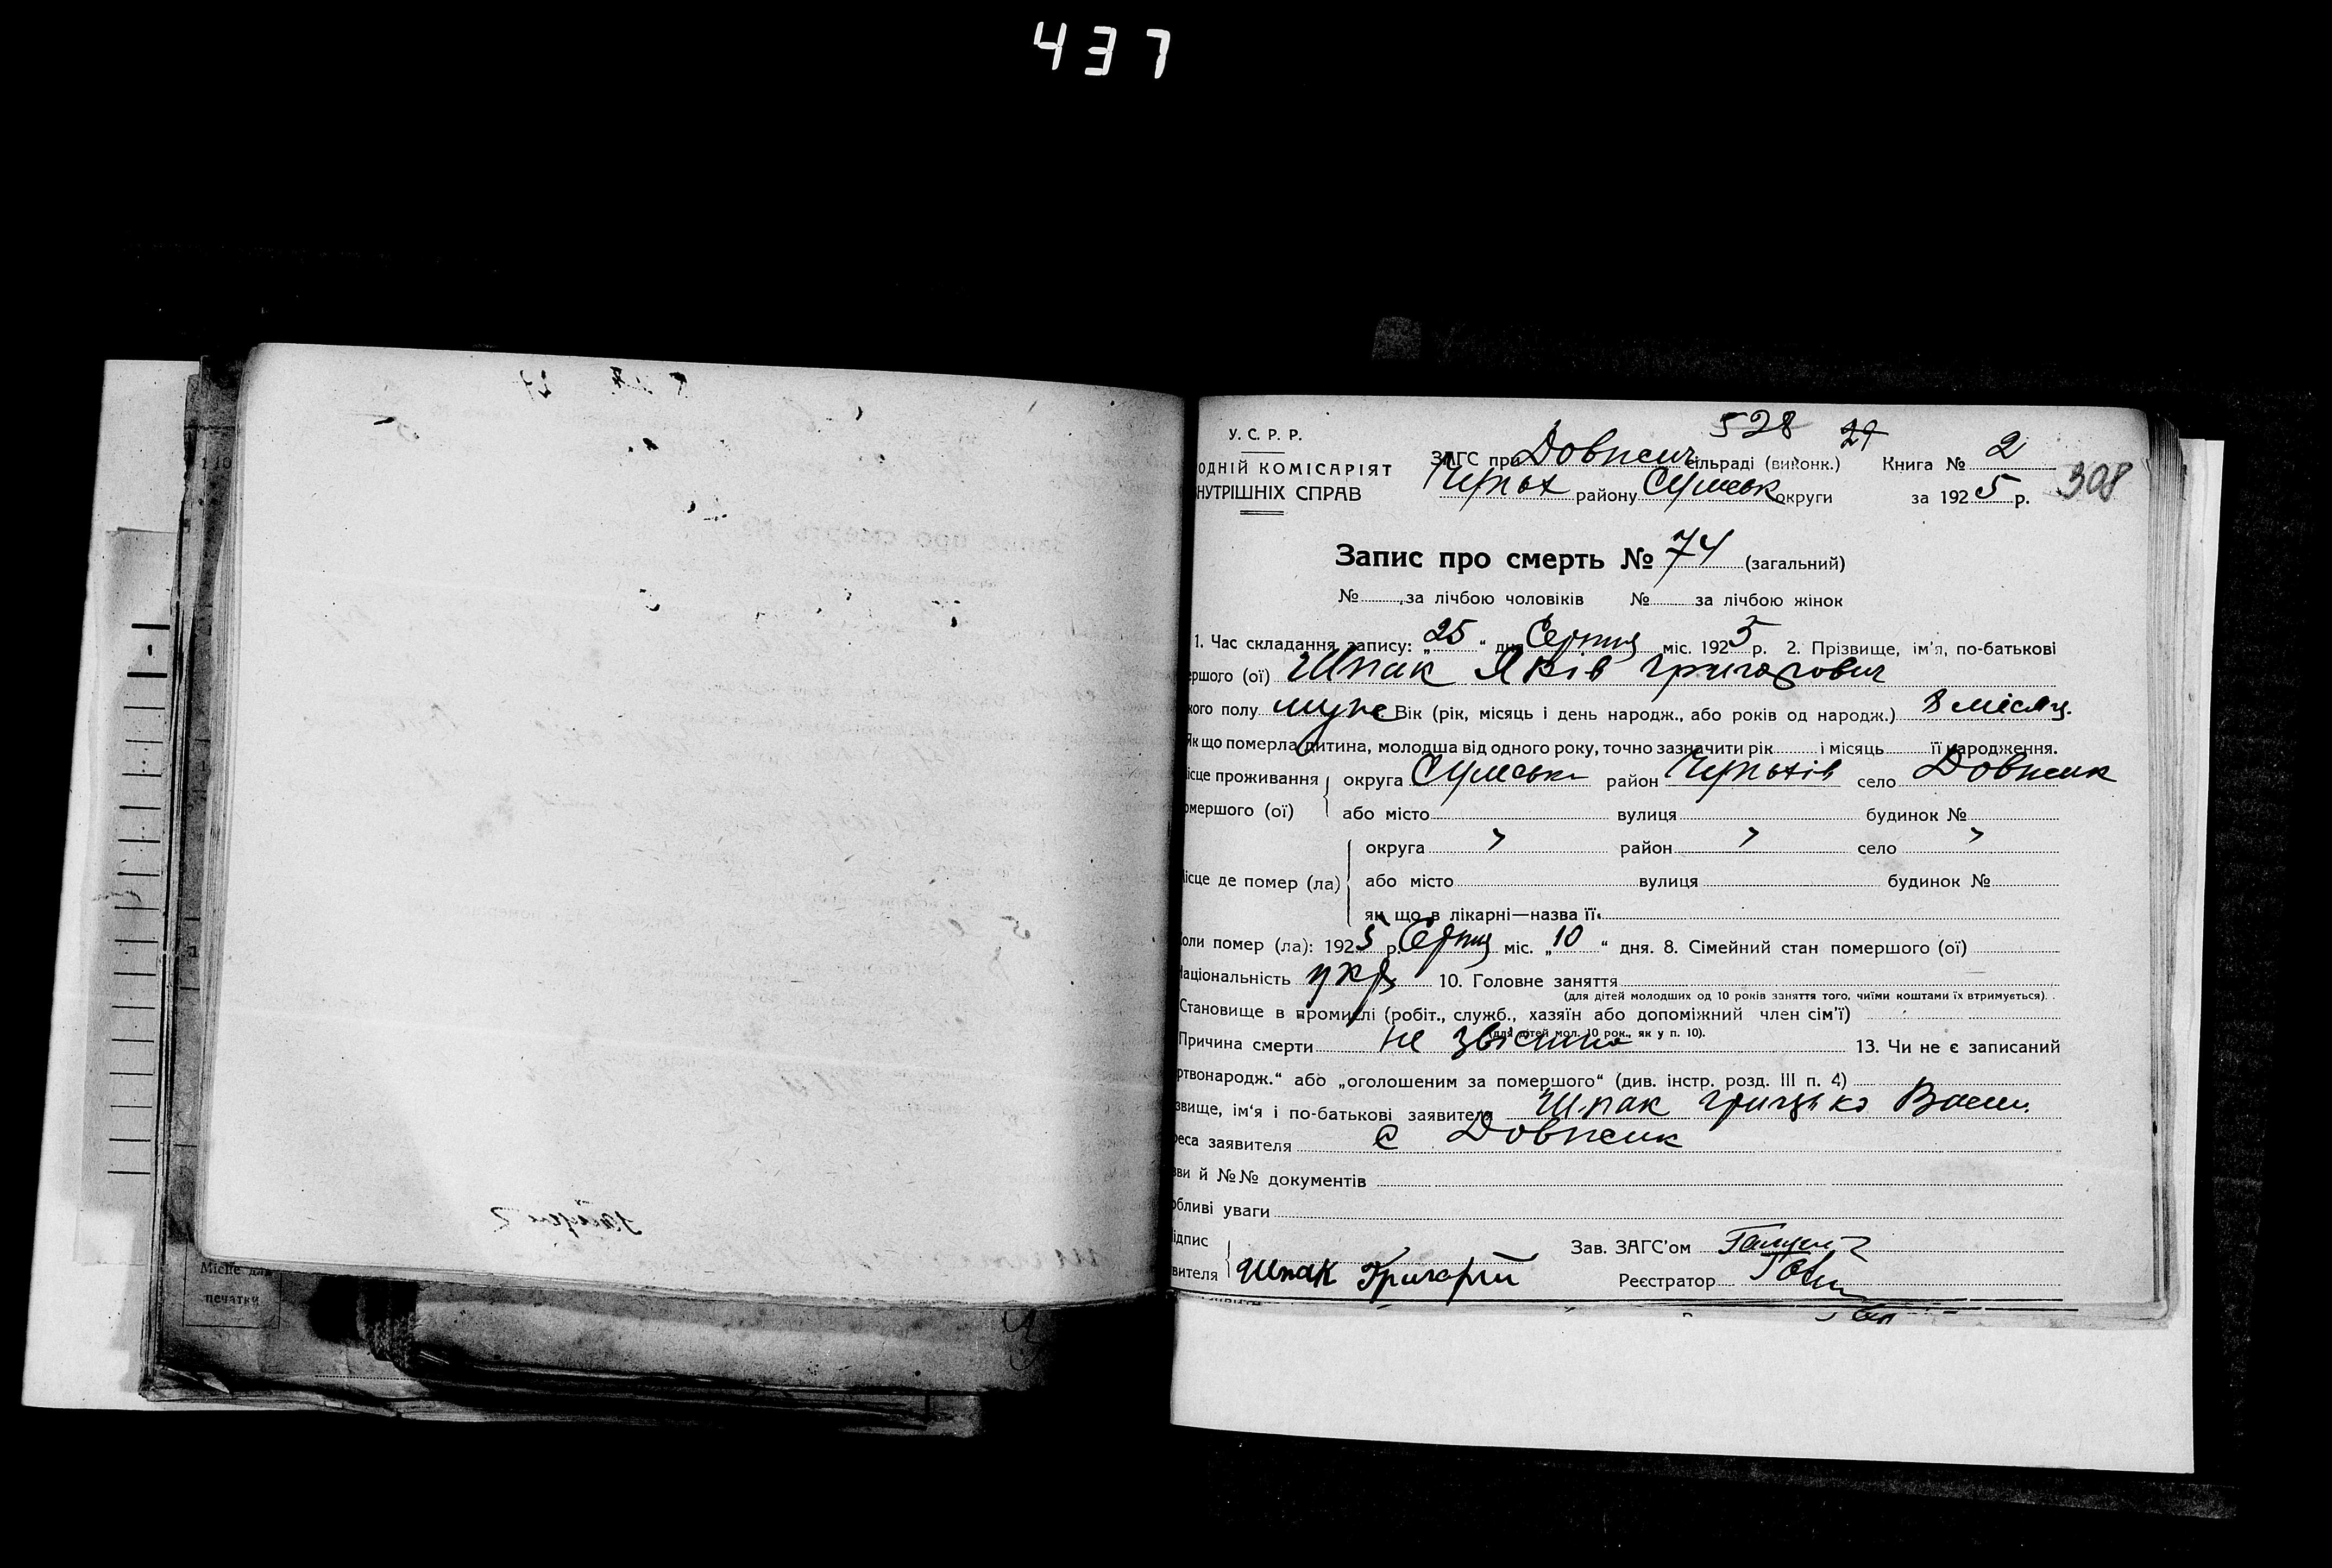 437
528 29
У. С. Р. Р. ЗАГС при Довжич. сільраді (виконк.) Книга № 2
ОДНІЙ КОМІСАРІЯТ
НУТРІШНІХ СПРАВ району Сумськ округи за 1925 р. 308
Запис про смерть № 74 (загальний)
№ за лічбою чоловіків № за лічбою жінок
1. Час складання запису: „25“ дня Серпня міс. 1925 р. 2. Прізвище, ім'я, по-батькові
ершого (ої) Шпак Яків Григорович
кого полу муж. Вік (рік, місяць і день народж., або років од народж.) 8 місяц.
Якщо померла дитина, молодша від одного року, точно зазначити рік і місяць її народження.
ісце проживання округа Сумськ район село Довжик
омершого (ої) або місто вулиця будинок №
округа " район " село "
ісце де помер (ла) або місто вулиця будинок №
як що в лікарні—назва її
оли помер (ла): 1925 р. Серпня міс. „10“ дня. 8. Сімейний стан помершого (ої)
Національність укр 10. Головне заняття
(для дітей молодших од 10 років заняття того, чиїми коштами їх втримується).
Становище в промислі (робіт., служб., хазяїн або допоміжний член сім'ї)
(для дітей мол. 10 рок., як у п. 10).
Причина смерти не звісно 13. Чи не є записаний
ртвонародж.“ або „оголошеним за помершого“ (див. інстр. розд. III п. 4)
звище, ім'я і по-батькові заявителя Шпак Грицько Васи.
реса заявителя с Довжик
зви й №№ документів
обливі уваги
ідпис Зав. ЗАГС'ом
вителя Шпак Григорій Реєстратор
Місце для
печатки